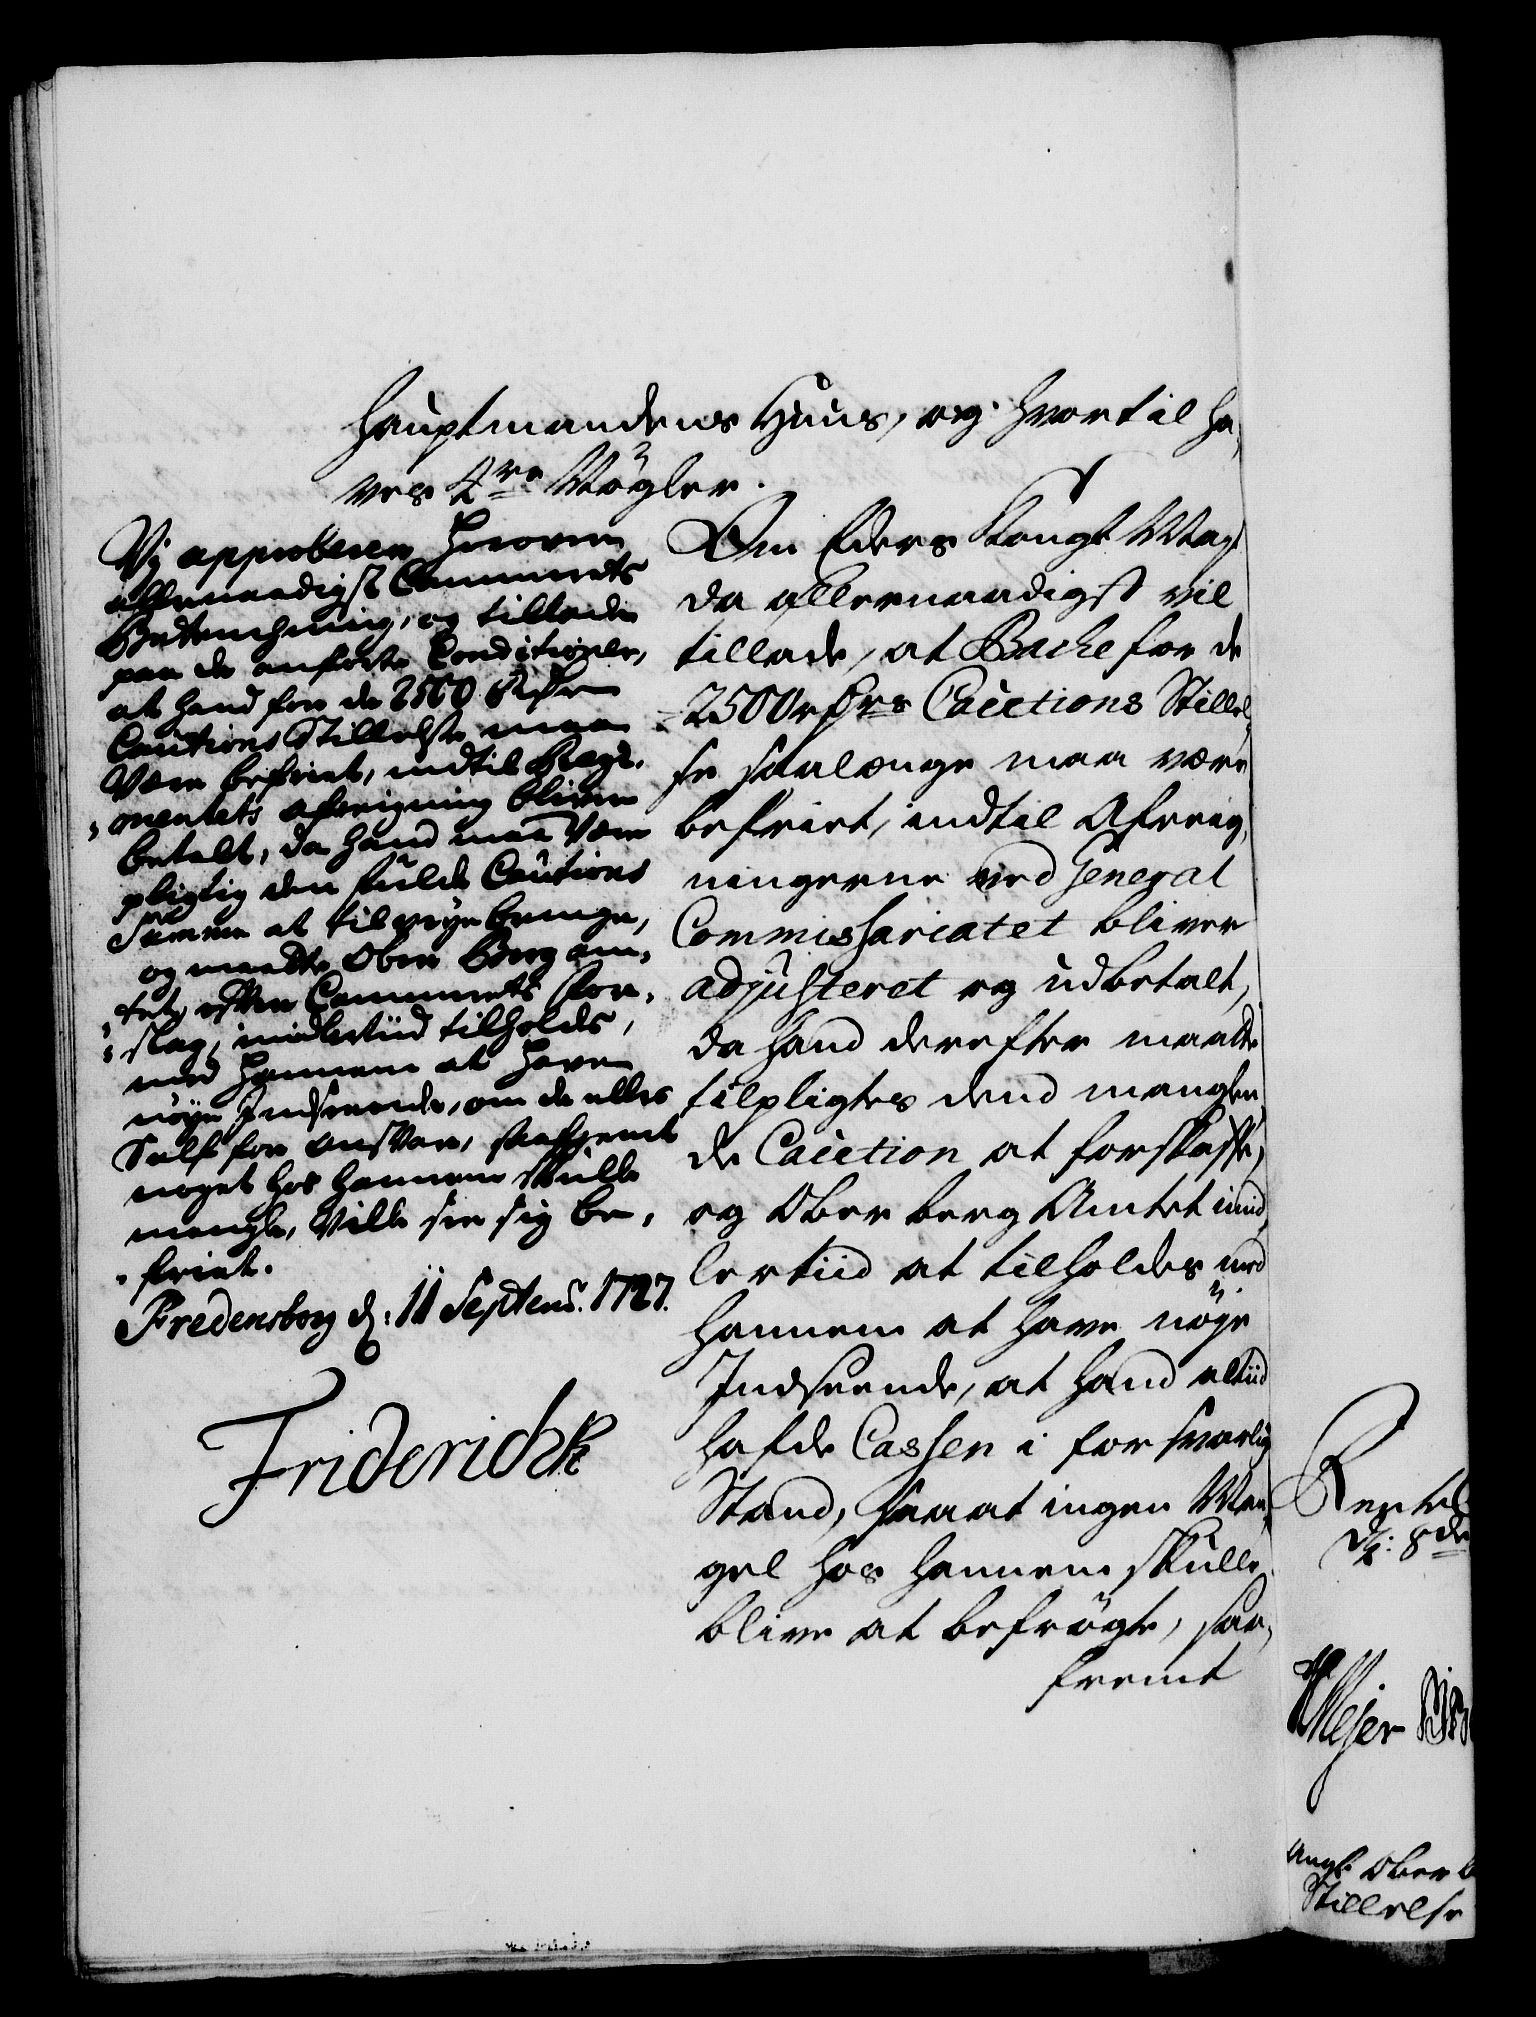 Hauptmandens Huus, og hvortil ha,
ves 4re Nögler.
Vj approberer herover
allernaadigst Cammerets
Betenchning, og tillade
paa de anförte Conditioner,
at hand for de 2500 Rdlrs
Cautions Stillelse maa
Være befriet, indtil Regi,
mentets afreigning bliver
betalt, da hand maa Være
pligtig den fulde Cautions
Summa at tilveye bringe,
og maatte Ober Berg am,
tet, efter Cammerets for,
slag, imidlertiid tilholdes,
med hannem at have
nöye Indseende, om de ellers
Self for ansvar, saafremt
noget hos hannem skulle
mangle, Ville see sig be,
friet.
Fredensborg d: 11 Septemb. 1727.
Friderich R
Om Eders Kongl May
da allernaadigst vil
tillade, at Bache for de
2500 rdrs Cautions Stillel,
se saalænge maa være
befriet, indtil Afreig,
ningerne ved General
Commissariatet bliver
adjusteret og udbetalt,
da hand derefter maatte
tilpligtes dend manglen
de Caution at forskaffe,
og Ober berg Amtet imid,
lertiid at tilholdes med
hannem at have nöje
Indseende, at hand altiid
hafde Cassen i forsvarlig
Stand, saa at ingen Man,
gel hos hannem skulle
blive at befrögte, saa,
fremt
Rentek
d: 8de
Mejer
ang: Ober b
Stillelse